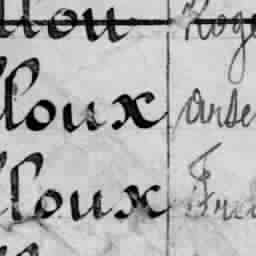 llou Roge
lloux arse
lloux Fre